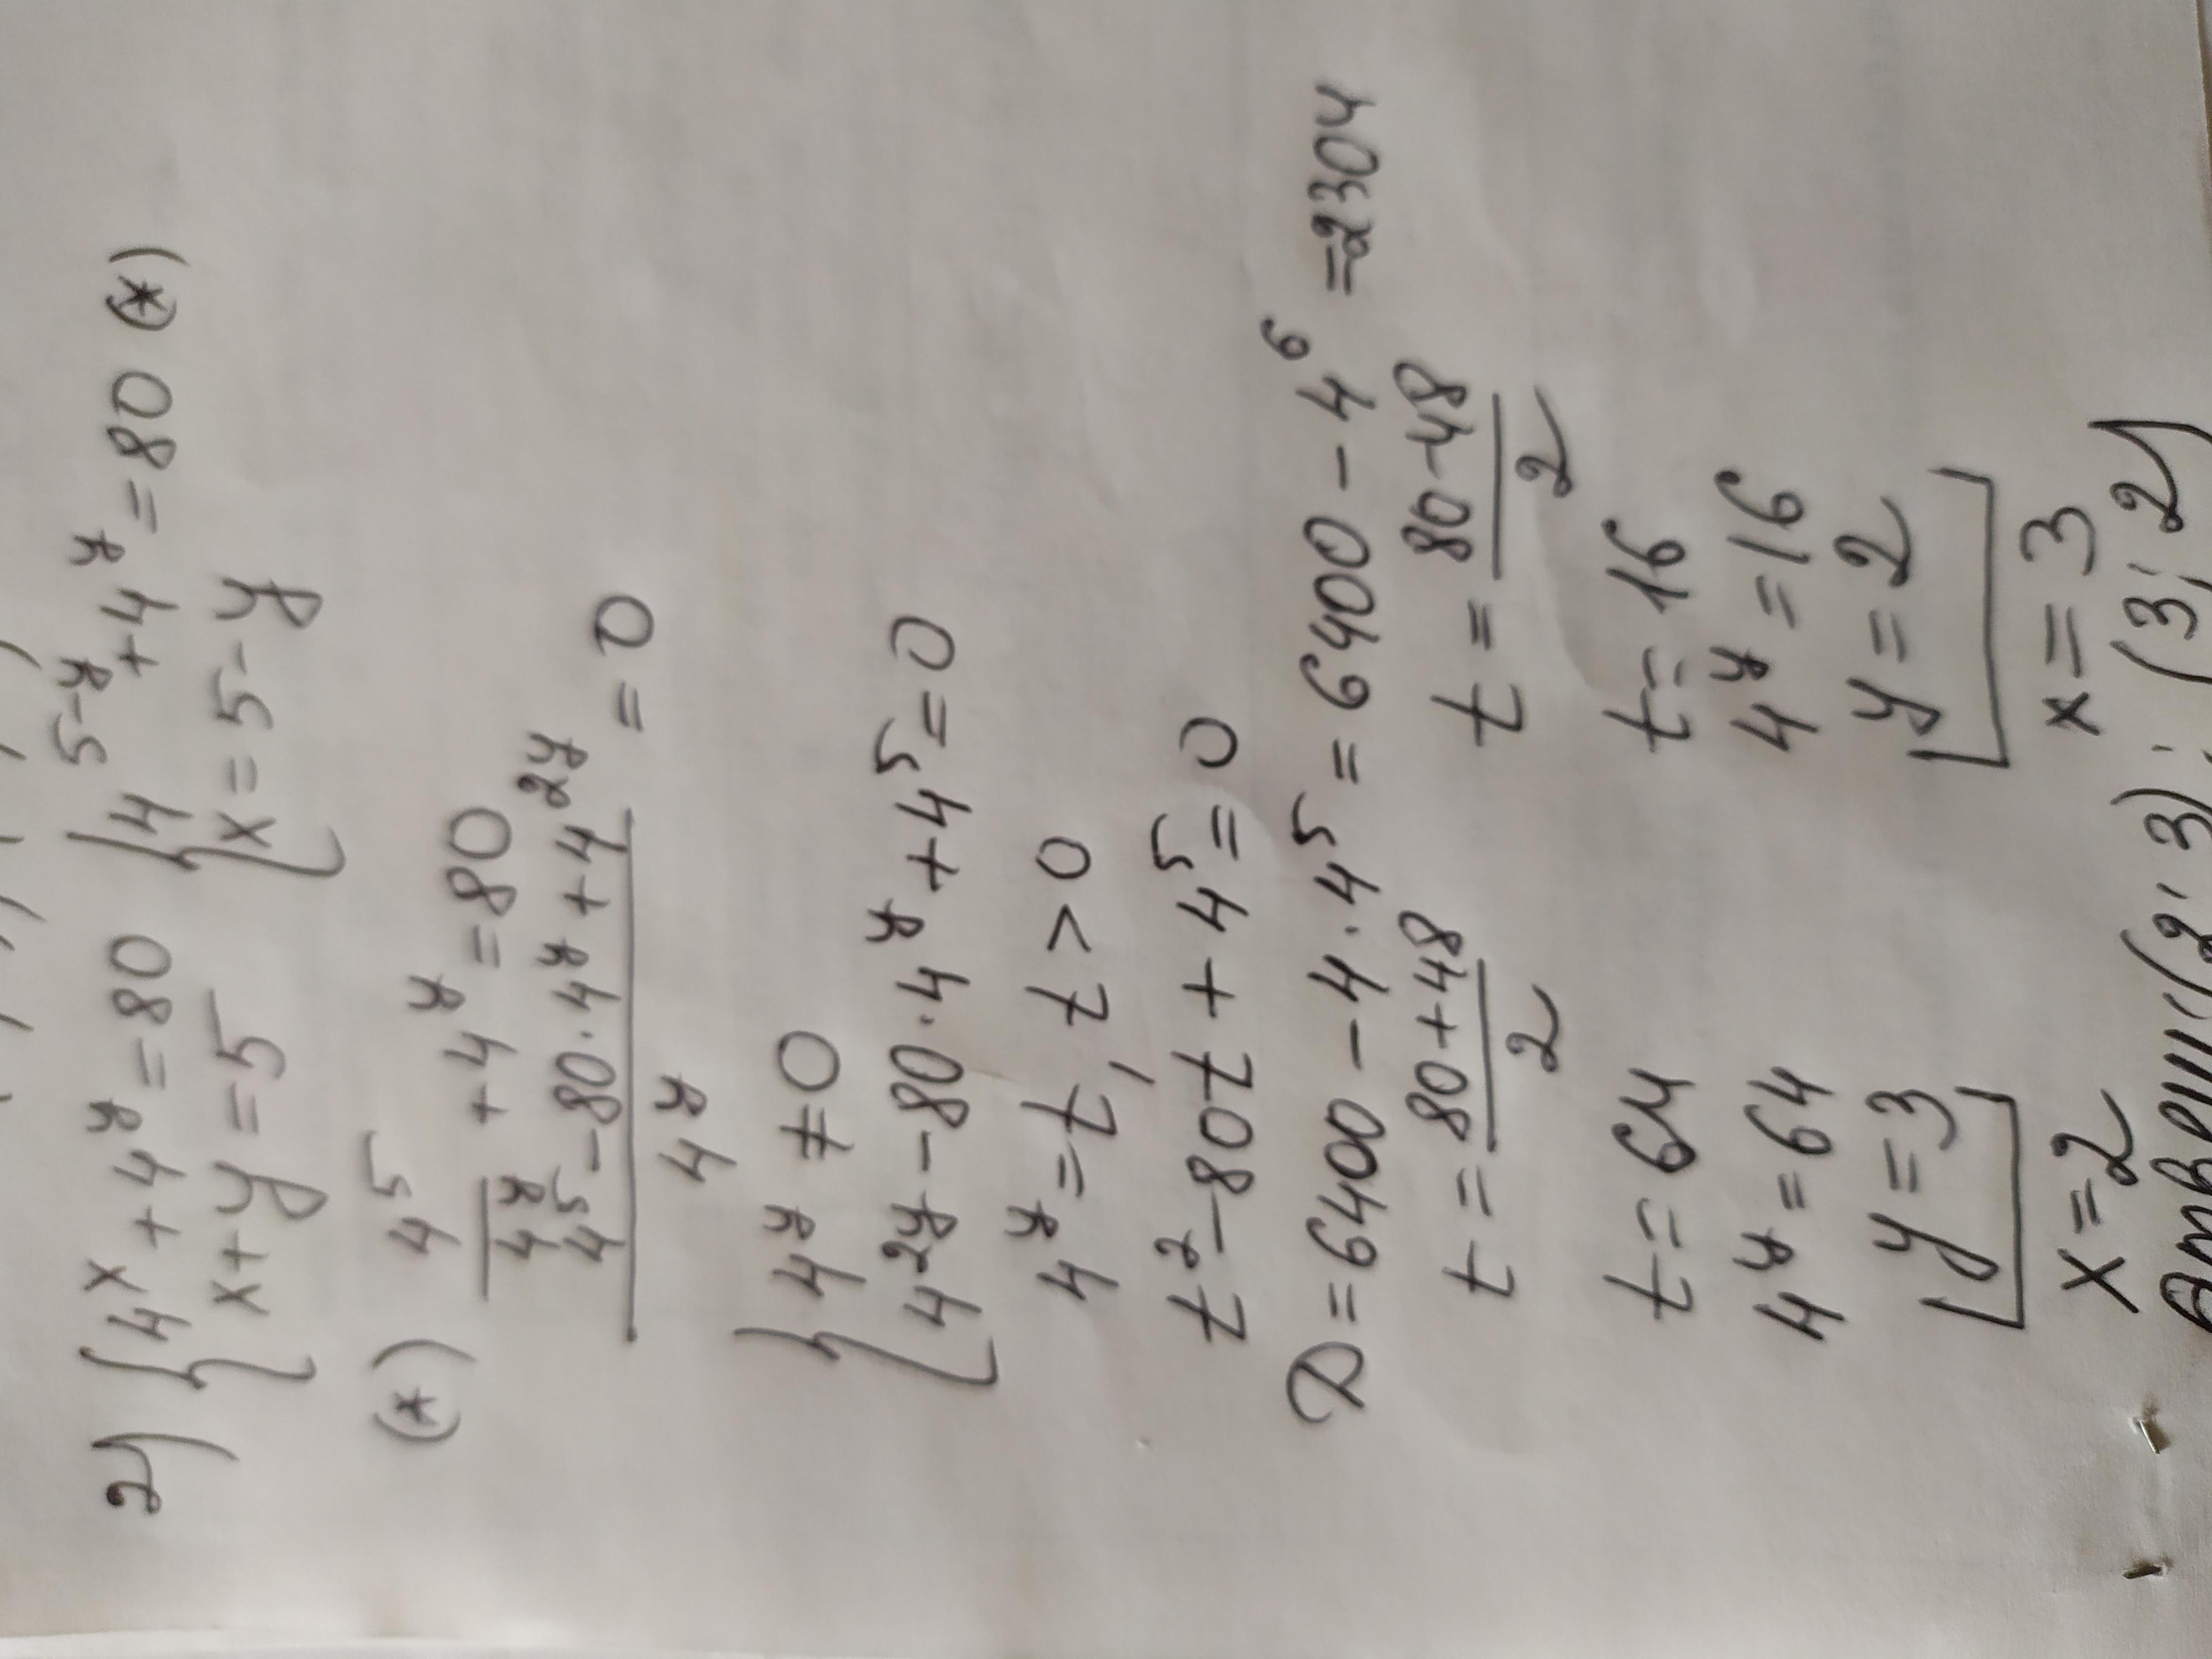 2) { 4^x + 4^y = 80 { 4^(5-y) + 4^y = 80 (*)
x + y = 5 x = 5 - y
(*) 4^5/4^y + 4^y = 80
(4^5 - 80 · 4^y + 4^(2y))/4^y = 0
{ 4^y ≠ 0
4^(2y) - 80 · 4^y + 4^5 = 0
4^y = t, t > 0
t^2 - 80t + 4^5 = 0
D = 6400 - 4 · 4^5 = 6400 - 4^6 = 2304
t = (80 + 48)/2 t = (80 - 48)/2
t = 64 t = 16
4^y = 64 4^y = 16
y = 3 y = 2
x = 2 x = 3
Ответ: (2; 3); (3; 2)